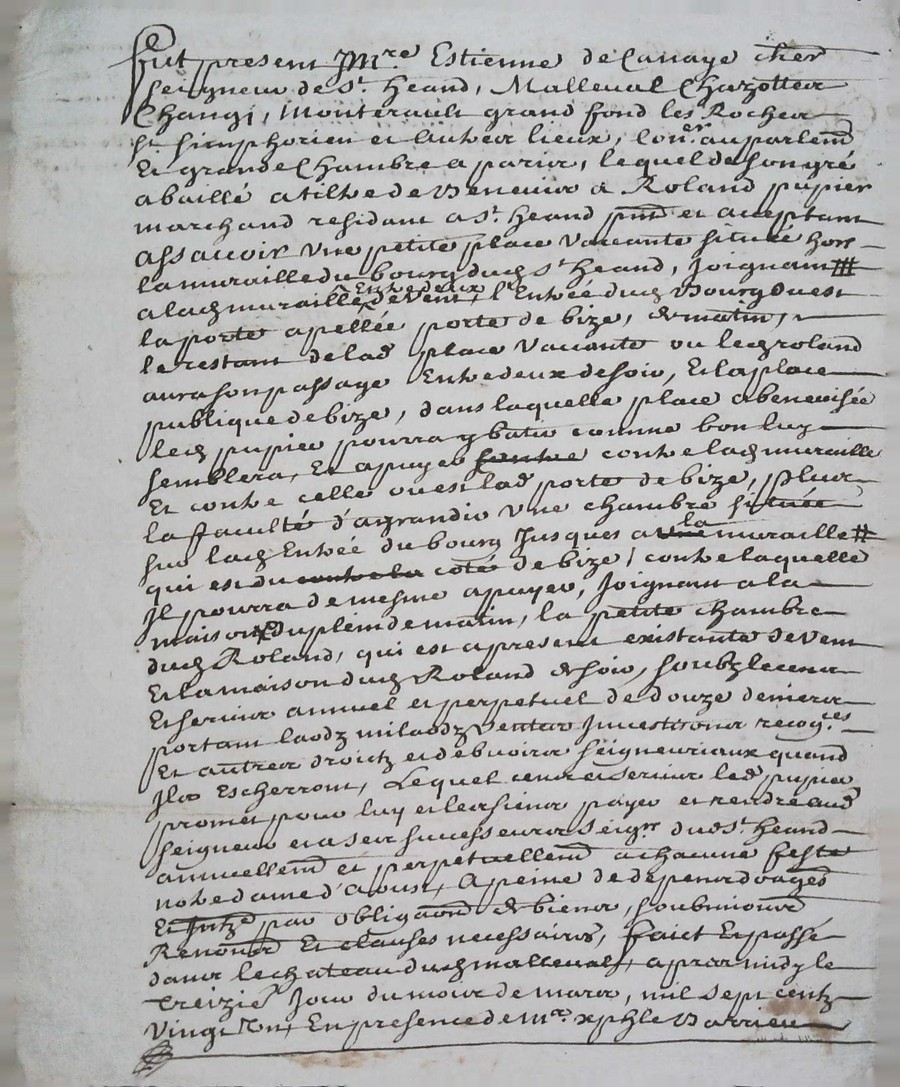 fut present Mre Estienne de Canaye cher
seigneur de St. heand, Malleval Chazottes
Changi, Monterault grand fond les Rochers
St simphorien et autres lieux, Coner. au parlemd
Et grande Chambre a paris, lequel de son gré
a baillé a tiltre de Benevis a Roland pupier
marchand residant a St. heand pnt et acceptant
assavoir une petite place vaccante située hors
la muraille du bourg dud St heand, Joignant
a lad muraille Entre deux de vent, l'Entrée dud Bourg ou est
la porte apellée porte de bize, de matin,
le restant de lad place vaccante ou led roland
aura son passage Entre deux de soir, Et la place
publique de bize, dans laquelle place abenevisée
led pupier pourra y batir comme bon luy
semblera, Et apuyer contre contre lad muraille
Et contre celle ou est lad porte de bize, plus
la faculté d'agrandir une chambre située
sur lad Entrée du bourg Jusques a la muraille
qui est du coté de bize, contre laquelle
Il pourra de mesme apuyer, Joignant a la
maison du plein de matin, la petite chambre
dud Roland, qui est a present existante de vent
Et la maison dud Roland de soir, soubz le cens
Et servis annuel et perpetuel de douze deniers
portant laodz milaodz ventes Investisons recogces
Et autres droitz et debvoirs seigneuriaux quand
Ilz Escherront, Lequel cens et servis led pupier
promet pour luy et les siens payer et rendre aud
seigneur et a ses successeurs seigrs dud St. heand
annuellemd et perpetuellemd a chacune feste
notre dame d'aoust, A peine de depens domages
Et Intz par obligaond de biens, soubmions
Renonond Et clauses necessaires, faict Et passé
dans le chateau dud malleval, apres midy le
treizie Jour du mois de mars, mil sept centz
vingt Un, En presence de Mre xphle Barrieu